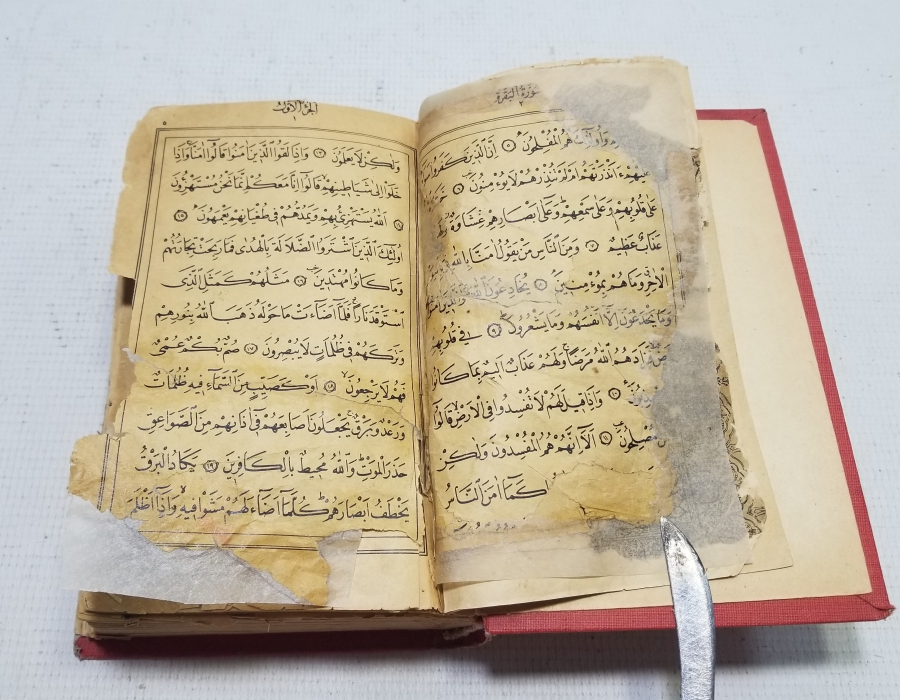 سورة البقرة
٢
وَأُولٰئِكَ هُمُ الْمُفْلِحُونَ ٥ اِنَّ الَّذِينَ كَفَرُوا
عَلَيْهِمْ ءَاَنْذَرْتَهُمْ اَمْ لَمْ تُنْذِرْهُمْ لَا يُؤْمِنُونَ ٦
عَلٰى قُلُوبِهِمْ وَعَلٰى سَمْعِهِمْ وَعَلٰى اَبْصَارِهِمْ غِشَاوَةٌ
عَذَابٌ عَظِيمٌ ٧ وَمِنَ النَّاسِ مَنْ يَقُولُ اٰمَنَّا بِاللّٰهِ
الْاٰخِرِ وَمَا هُمْ بِمُؤْمِنِينَ ٨ يُخَادِعُونَ اللّٰهَ وَالَّذِينَ
وَمَا يَخْدَعُونَ اِلَّا اَنْفُسَهُمْ وَمَا يَشْعُرُونَ ٩ فِي قُلُوبِهِمْ
فَزَادَهُمُ اللّٰهُ مَرَضًا وَلَهُمْ عَذَابٌ اَلِيمٌ بِمَا كَانُوا
١٠ وَاِذَا قِيلَ لَهُمْ لَا تُفْسِدُوا فِي الْاَرْضِ قَالُوا
مُصْلِحُونَ ١١ اَلَا اِنَّهُمْ هُمُ الْمُفْسِدُونَ وَلٰكِنْ
كَمَا اٰمَنَ النَّاسُ
الجزء الاول
وَلٰكِنْ لَا يَعْلَمُونَ ١٣ وَاِذَا لَقُوا الَّذِينَ اٰمَنُوا قَالُوا اٰمَنَّا وَاِذَا
خَلَوْا اِلٰى شَيَاطِينِهِمْ قَالُوا اِنَّا مَعَكُمْ اِنَّمَا نَحْنُ مُسْتَهْزِؤُنَ
١٤ اَللّٰهُ يَسْتَهْزِئُ بِهِمْ وَيَمُدُّهُمْ فِي طُغْيَانِهِمْ يَعْمَهُونَ ١٥
اُولٰئِكَ الَّذِينَ اشْتَرَوُا الضَّلَالَةَ بِالْهُدٰى فَمَا رَبِحَتْ تِجَارَتُهُمْ
وَمَا كَانُوا مُهْتَدِينَ ١٦ مَثَلُهُمْ كَمَثَلِ الَّذِي
اسْتَوْقَدَ نَارًا فَلَمَّا اَضَاءَتْ مَا حَوْلَهُ ذَهَبَ اللّٰهُ بِنُورِهِمْ
وَتَرَكَهُمْ فِي ظُلُمَاتٍ لَا يُبْصِرُونَ ١٧ صُمٌّ بُكْمٌ عُمْيٌ
فَهُمْ لَا يَرْجِعُونَ ١٨ اَوْ كَصَيِّبٍ مِنَ السَّمَاءِ فِيهِ ظُلُمَاتٌ
وَرَعْدٌ وَبَرْقٌ يَجْعَلُونَ اَصَابِعَهُمْ فِي اٰذَانِهِمْ مِنَ الصَّوَاعِقِ
حَذَرَ الْمَوْتِ وَاللّٰهُ مُحِيطٌ بِالْكَافِرِينَ ١٩ يَكَادُ الْبَرْقُ
يَخْطَفُ اَبْصَارَهُمْ كُلَّمَا اَضَاءَ لَهُمْ مَشَوْا فِيهِ وَاِذَا اَظْلَمَ